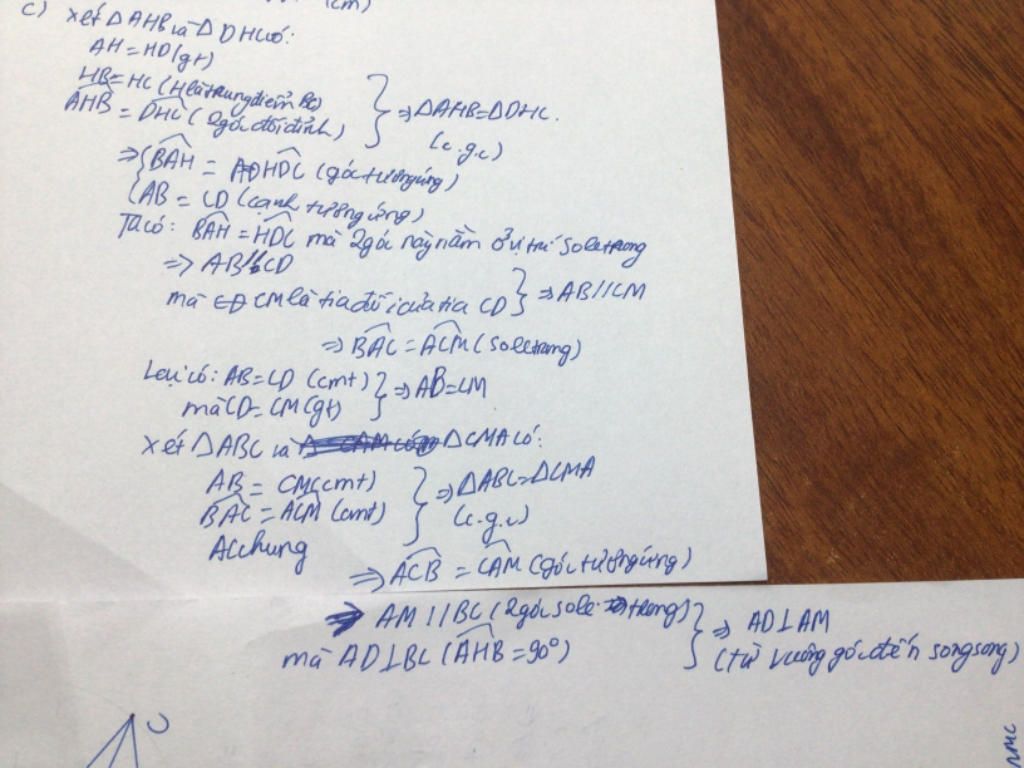 (cm)
c) Xét ΔAHB và ΔDHC có:
AH = HD (gt)
HB = HC (H là trung điểm BC)
AHB = DHC (2 góc đối đỉnh)
⇒ ΔAHB = ΔDHC.
(c.g.c)
⇒ { BAH = HDC (góc tương ứng)
AB = CD (cạnh tương ứng)
Ta có: BAH = HDC mà 2 góc này nằm ở vị trí so le trong
⇒ AB // CD
mà CM là tia đối của tia CD } ⇒ AB // CM
⇒ BAC = ACM (so le trong)
Lại có: AB = CD (cmt)
mà CD = CM (gt) } ⇒ AB = CM
Xét ΔABC và ΔCMA có:
AB = CM (cmt)
BAC = ACM (cmt)
AC chung
⇒ ΔABC = ΔCMA
(c.g.c)
⇒ ACB = CAM (góc tương ứng)
⇒ AM // BC (2 góc so le trong)
mà AD ⊥ BC (AHB = 90°)
⇒ AD ⊥ AM
(từ vuông góc đến song song)